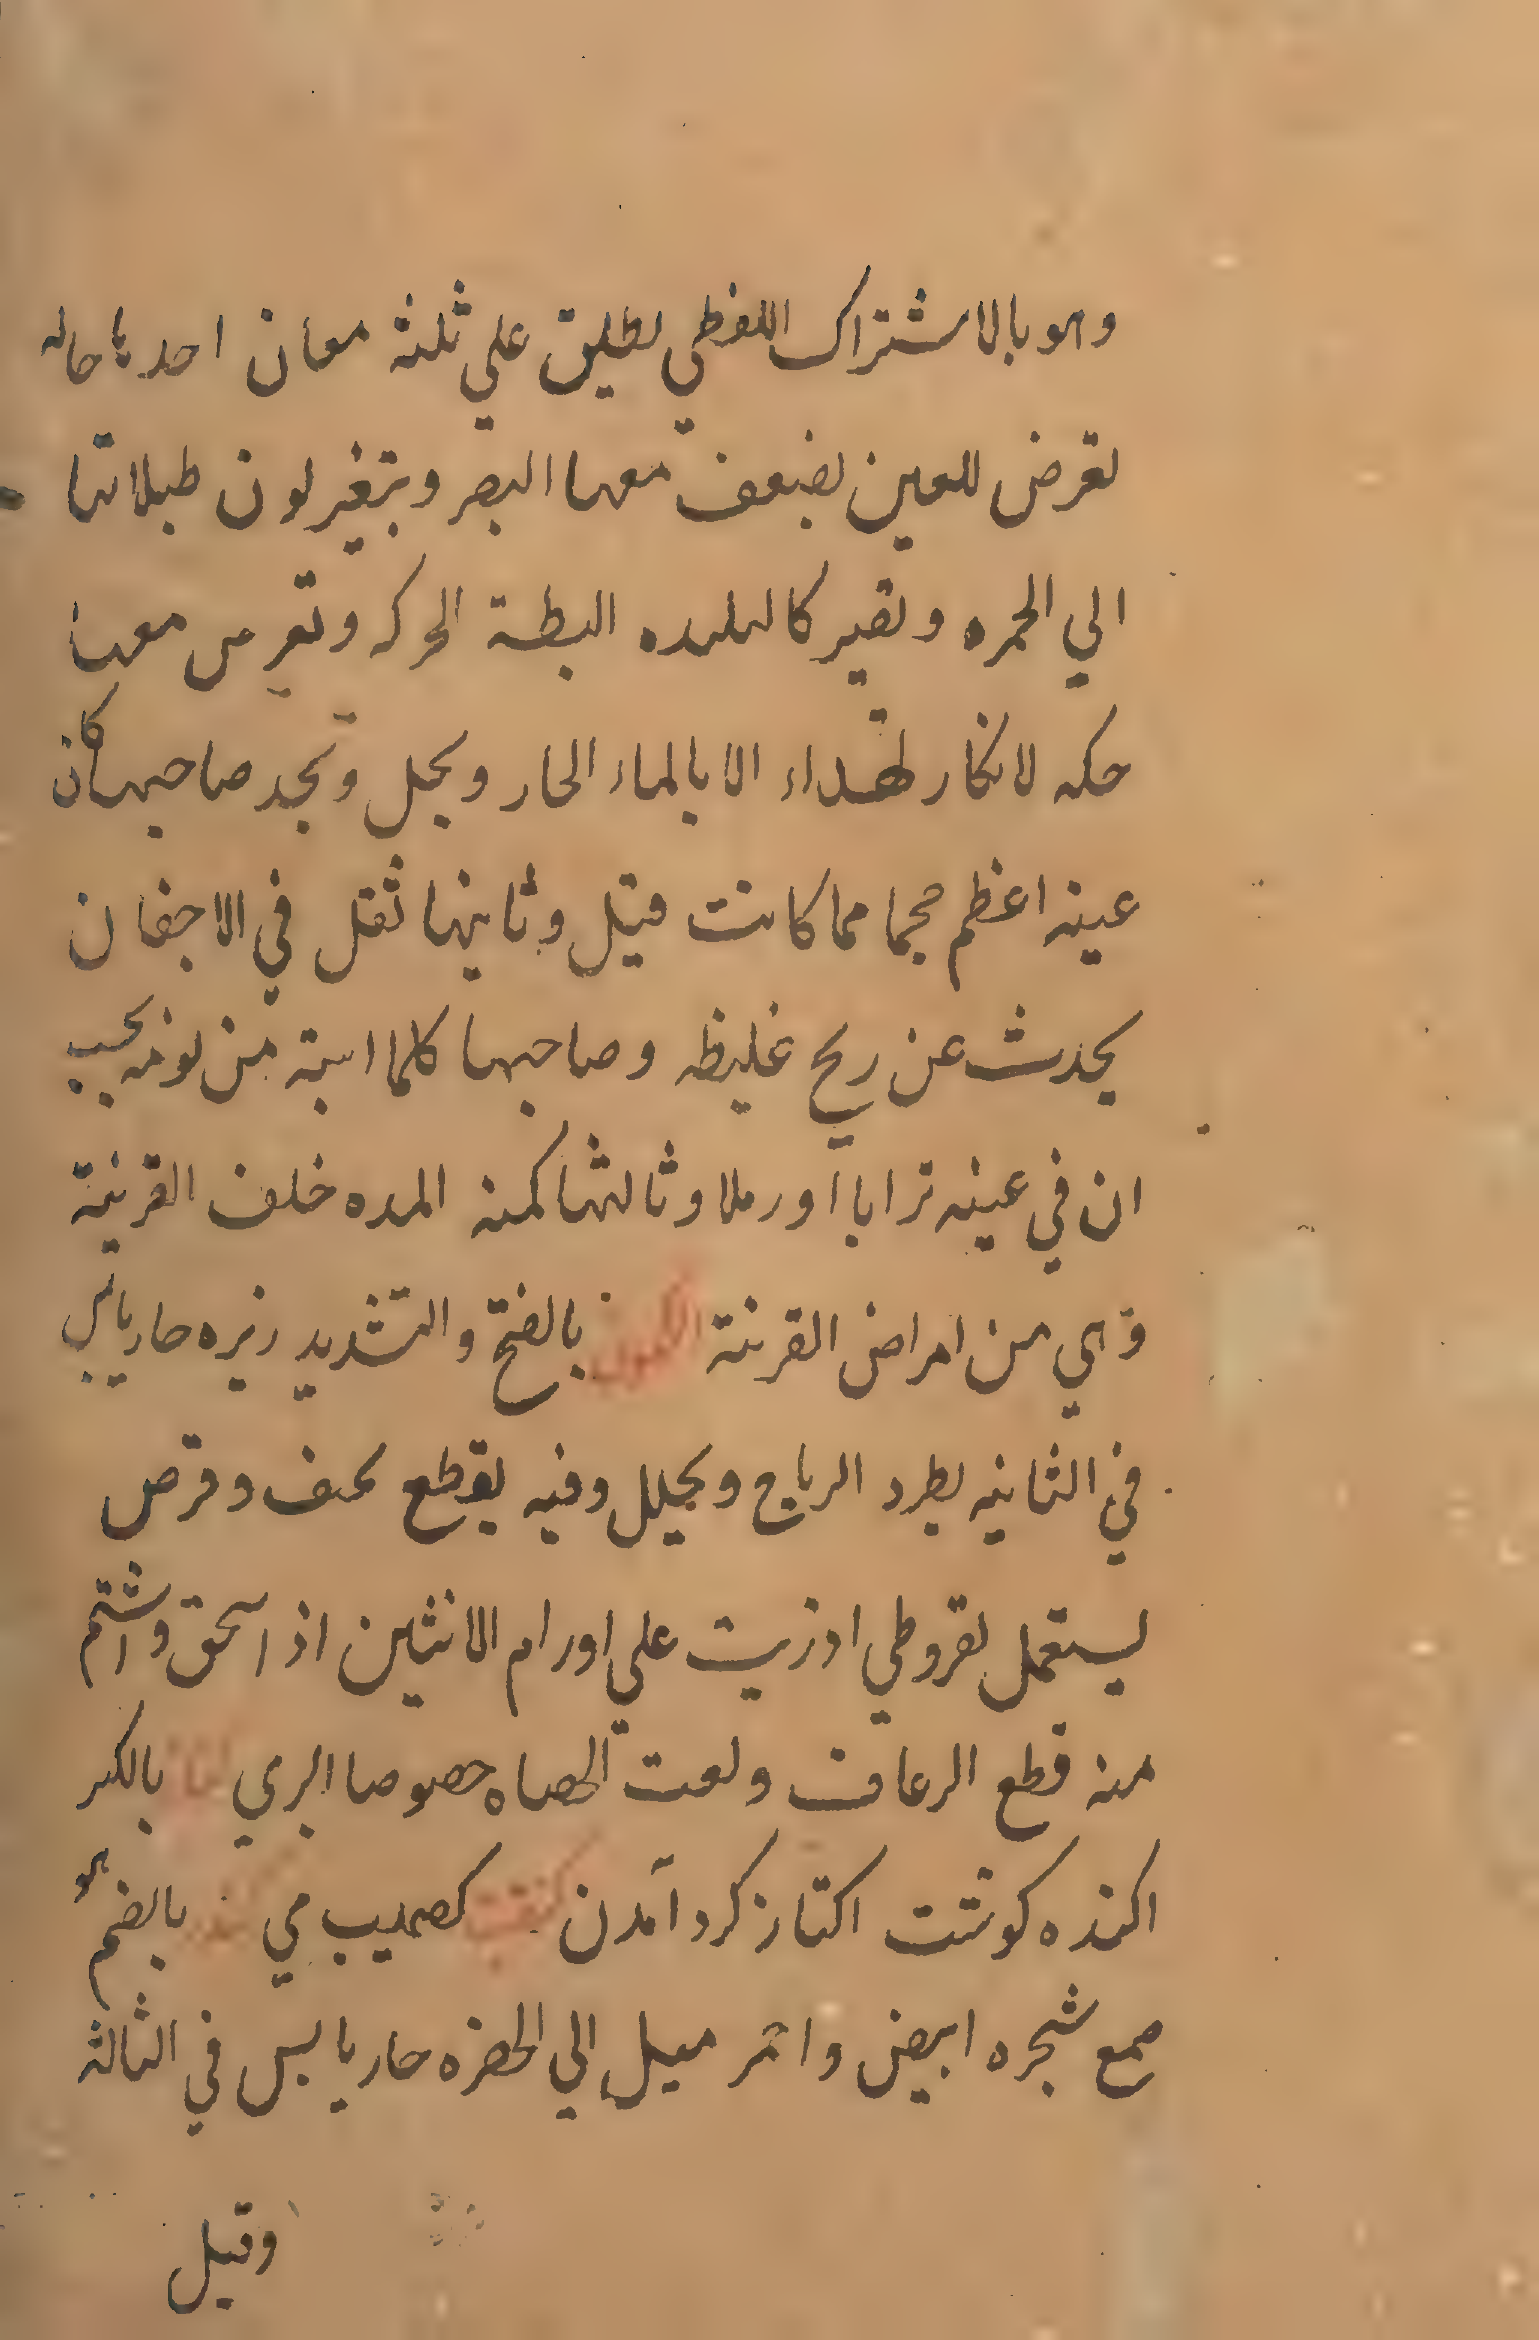 وهو بالاشتراك اللفظي يطلق علي ثلثة معان احدها حاله
تعرض للعين يضعف معها البصر ويتغير لون طبقاتها
الي الحمره وتصير كالبليده البطئة الحركه وتعرض معها
حكه لا تكاد تهداء الا بالماء الحار وتجد صاحبها كان
عينه اعظم حجما مما كانت قبل وثانيها ثقل في الاجفان
يحدث عن ريح غليظه وصاحبها كلما انتبه من نومه يحسب
ان في عينه ترابا او رملا وثالثها كمنة المده خلف القرنية
وهي من امراض القرنية الكمون بالفتح والتشديد زيره حار يابس
في الثانيه يطرد الرياح ويحلل وفيه تقطيع تجفيف وقبض
يستعمل بقروطي او زيت علي اورام الانثيين اذا سحق واشتم
منه قطع الرعاف ويفتت الحصاه خصوصا البري بالكسر
اكنده كوشت اكتناز كرد آمدن كصميب مي بالضم هو
صمغ شجره ابيض واحمر ميل الي الخضره حار يابس في الثالثه
وقيل